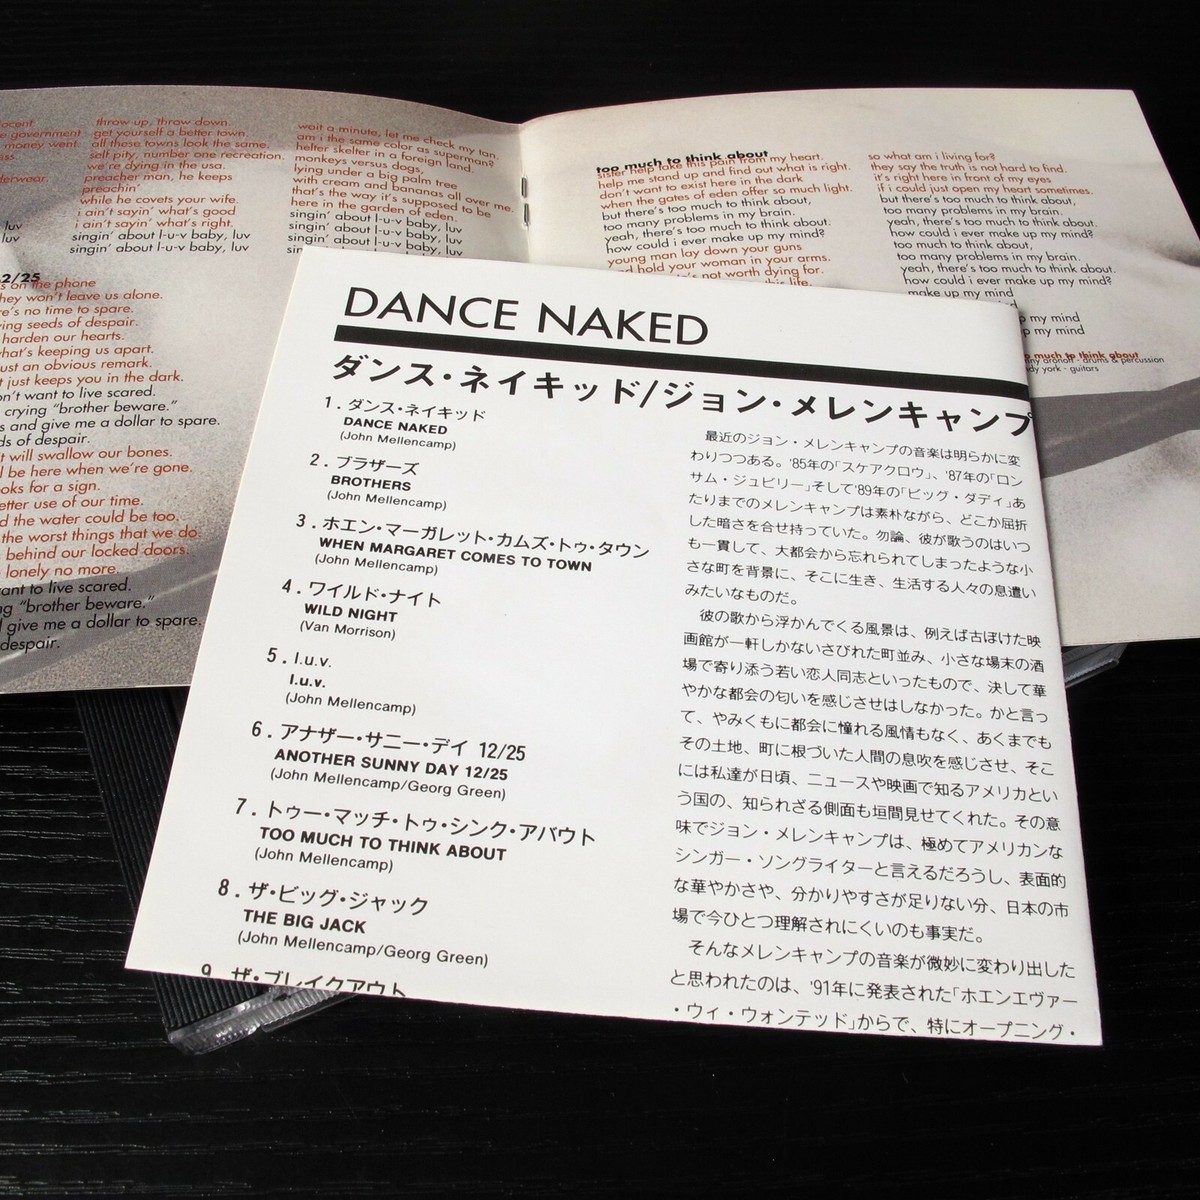 throw up, throw down.
get yourself a better town.
all these towns look the same.
self pity, number one recreation,
we're dying in the usa.
preacher man, he keeps
preachin'
while he covets your wife.
i ain't sayin' what's good
i ain't sayin' what's right.
singin' about l-u-v baby, luv
singin' about l-u-v baby, luv
e government
money went.
derwear.
luv
luv
wait a minute, let me check my tan.
am i the same color as superman?
helter skelter in a foreign land.
monkeys versus dogs,
lying under a big palm tree
with cream and bananas all over me.
that's the way it's supposed to be
here in the garden of eden.
singin' about l-u-v baby, luv
singin' about l-u-v baby, luv
singin' about l-u-v baby, luv
2/25
s on the phone
hey won't leave us alone.
re's no time to spare.
ing seeds of despair.
harden our hearts.
hat's keeping us apart.
ust an obvious remark.
t just keeps you in the dark.
n't want to live scared.
crying "brother beware."
s and give me a dollar to spare.
ds of despair.
t will swallow our bones.
l be here when we're gone.
oks for a sign.
etter use of our time.
d the water could be too.
the worst things that we do.
behind our locked doors.
lonely no more.
ant to live scared.
ng "brother beware."
give me a dollar to spare.
despair.
too much to think about
sister help take this pain from my heart.
help me stand up and find out what is right.
don't want to exist here in the dark
when the gates of eden offer so much light.
but there's too much to think about,
too many problems in my brain.
yeah, there's too much to think about.
how could i ever make up my mind?
young man lay down your guns
d hold your woman in your arms.
's not worth dying for.
this life.
so what am i living for?
they say the truth is not hard to find.
it's right here in front of my eyes
if i could just open my heart sometimes.
but there's too much to think about,
too many problems in my brain.
yeah, there's too much to think about.
how could i ever make up my mind?
too much to think about,
too many problems in my brain.
yeah, there's too much to think about.
how could i ever make up my mind?
make up my mind
p my mind
p my mind
o much to think about
ny aronoff - drums & percussion
dy york - guitars
DANCE NAKED
ダンス・ネイキッド/ジョン・メレンキャンプ
1. ダンス・ネイキッド
DANCE NAKED
(John Mellencamp)
2. ブラザーズ
BROTHERS
(John Mellencamp)
3. ホエン・マーガレット・カムズ・トゥ・タウン
WHEN MARGARET COMES TO TOWN
(John Mellencamp)
4. ワイルド・ナイト
WILD NIGHT
(Van Morrison)
5. l.u.v.
l.u.v.
(John Mellencamp)
6. アナザー・サニー・デイ 12/25
ANOTHER SUNNY DAY 12/25
(John Mellencamp/Georg Green)
7. トゥー・マッチ・トゥ・シンク・アバウト
TOO MUCH TO THINK ABOUT
(John Mellencamp)
8. ザ・ビッグ・ジャック
THE BIG JACK
(John Mellencamp/Georg Green)
9. ザ・ブレイクアウト
最近のジョン・メレンキャンプの音楽は明らかに変
わりつつある。'85年の「スケアクロウ」、'87年の「ロン
サム・ジュビリー」そして'89年の「ビッグ・ダディ」あ
たりまでのメレンキャンプは素朴ながら、どこか屈折
した暗さを合せ持っていた。勿論、彼が歌うのはいつ
も一貫して、大都会から忘れられてしまったような小
さな町を背景に、そこに生き、生活する人々の息遣い
みたいなものだ。
彼の歌から浮かんでくる風景は、例えば古ぼけた映
画館が一軒しかないさびれた町並み、小さな場末の酒
場で寄り添う若い恋人同志といったもので、決して華
やかな都会の匂いを感じさせはしなかった。かと言っ
て、やみくもに都会に憧れる風情もなく、あくまでも
その土地、町に根づいた人間の息吹を感じさせ、そこ
には私達が日頃、ニュースや映画で知るアメリカとい
う国の、知られざる側面も垣間見せてくれた。その意
味でジョン・メレンキャンプは、極めてアメリカンな
シンガー・ソングライターと言えるだろうし、表面的
な華やかさや、分かりやすさが足りない分、日本の市
場で今ひとつ理解されにくいのも事実だ。
そんなメレンキャンプの音楽が微妙に変わり出した
と思われたのは、'91年に発表された「ホエンエヴァー
・ウィ・ウォンテッド」からで、特にオープニング・